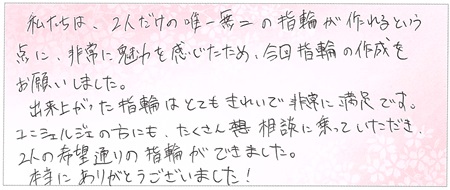 私たちは、2人だけの唯一無二の指輪が作れるという
点に、非常に魅力を感じたため、今回指輪の作成を
お願いしました。
出来上がった指輪はとてもきれいで非常に満足です。
ユニシェルジェの方にも、たくさん想 相談に乗っていただき、
2人の希望通りの指輪ができました。
本当にありがとうございました！